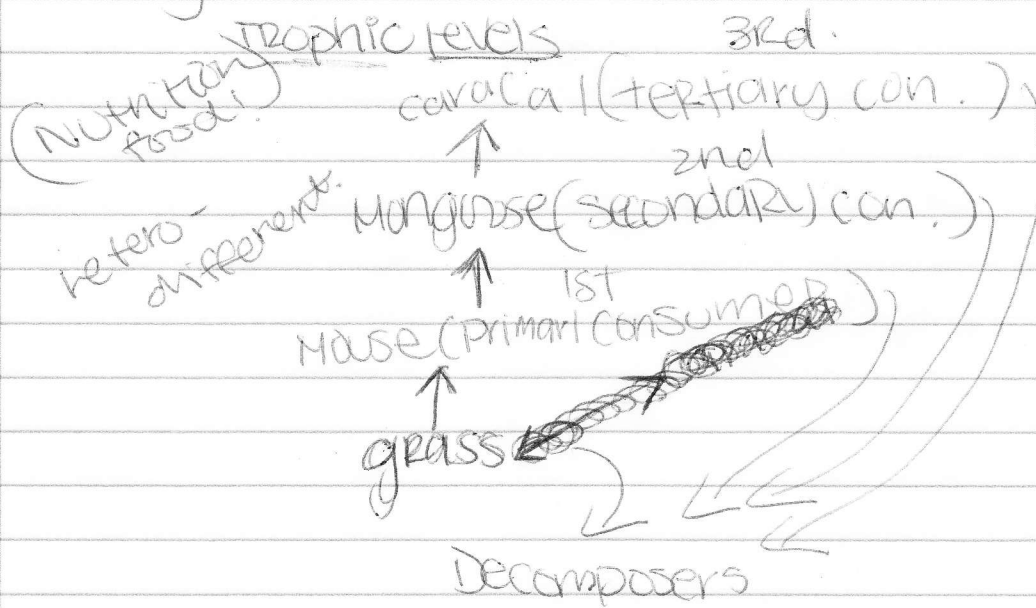 Trophic levels 3rd.
(Nutrition food!)
caracal (tertiary con.)
2nd
hetero- different.
Mongoose (secondary con.)
1st
Mouse (primary consumer)
grass
Decomposers